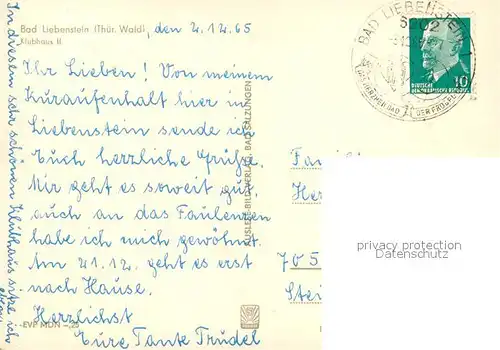 Bad Liebenstein (Thür. Wald), den 2.12.65
Klubhaus II
Ihr Lieben! Von meinem
Kuraufenthalt hier in
Liebenstein sende ich
Euch herzliche Grüße.
Mir geht es soweit gut,
auch an das Faulenzen
habe ich mich gewöhnt.
Am 21.12. geht es erst
nach Hause.
Herzlichst
Eure Tante Trudel
EVP MDN -,25
In diesem sehr schönen Klubhaus sitze ich
AUSLESE-BILD-VERLAG, BAD SALZUNGEN
BAD LIEBENSTEIN
6202
DEUTSCHE
DEMOKRATISCHE REPUBLIK
10
Famili
He
705
Stei
privacy protection
Datenschutz